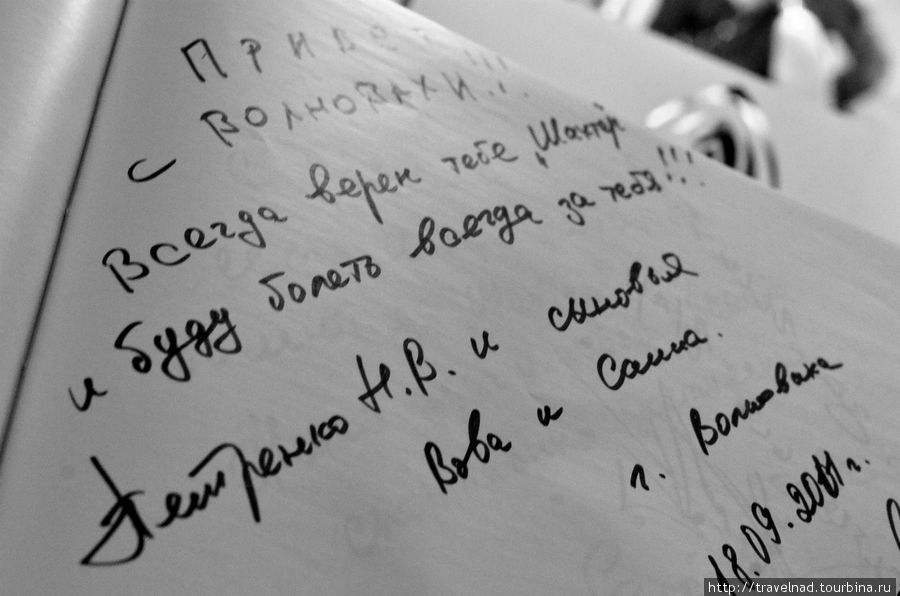 ПРИВЕТ
С ВОЛНОВАХИ!!!
Всегда верен тебе „Шахтёр"
и буду болеть всегда за тебя!!!
Петренко Н.В. и сыновья
Вова и Саша.
г. Волноваха
18.09.2011 г.
http://travelnad.tourbina.ru